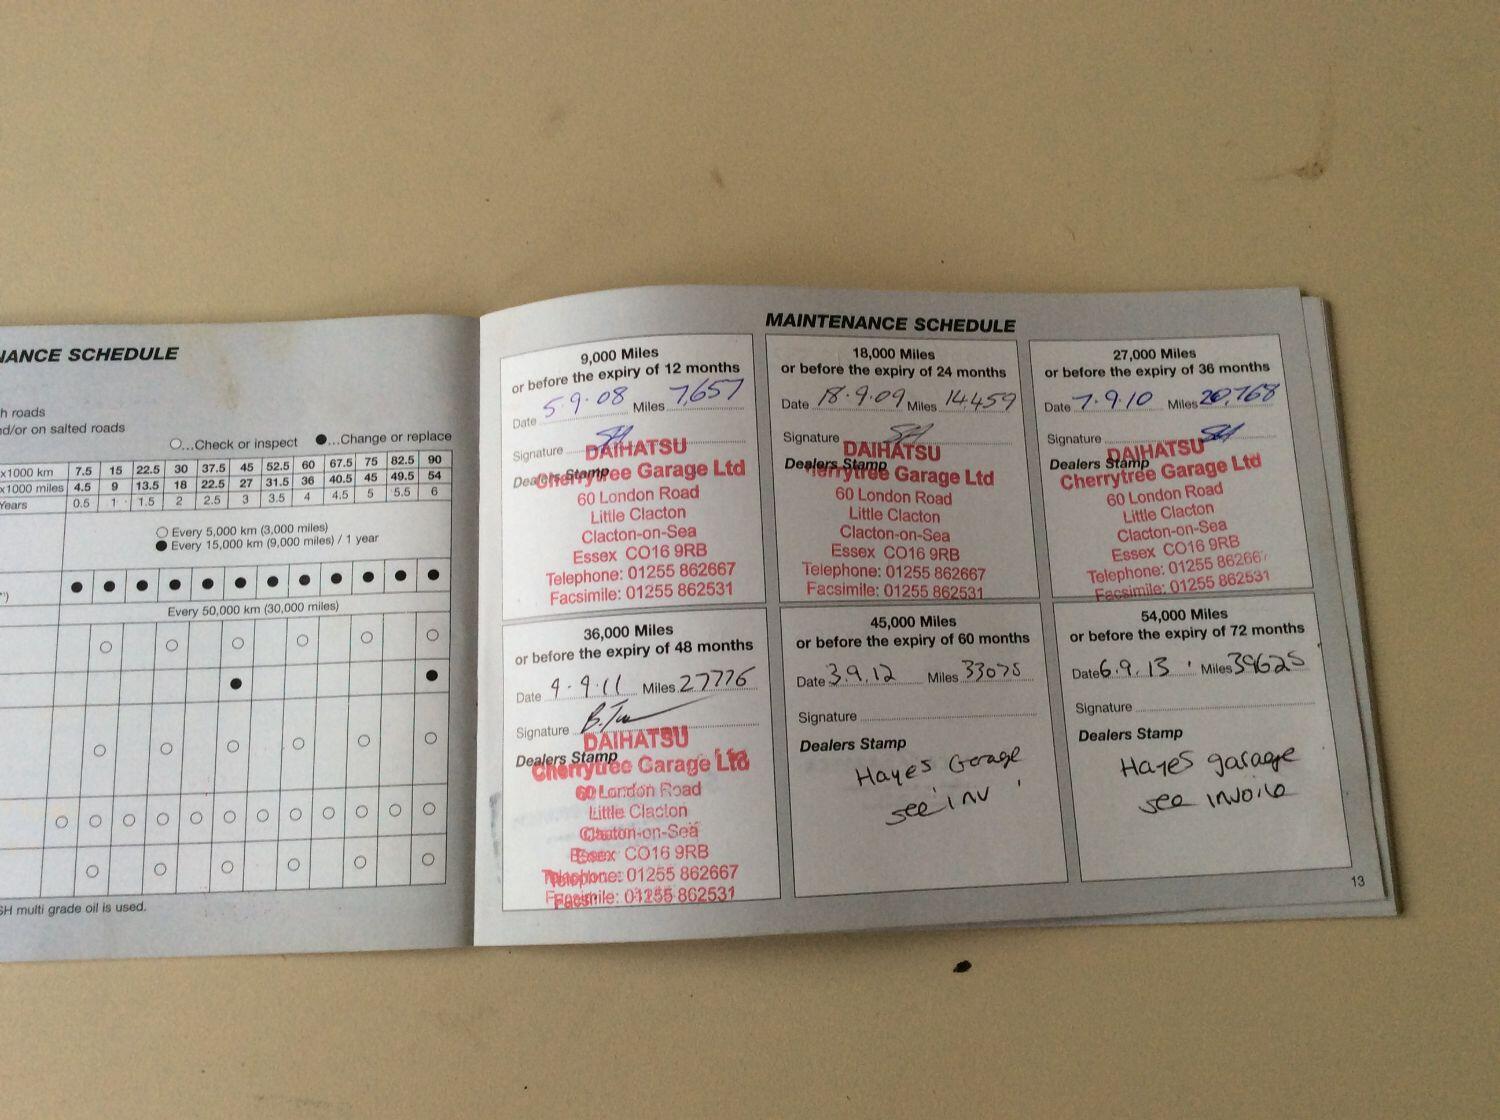 NANCE SCHEDULE
h roads
nd/or on salted roads
○...Check or inspect ●...Change or replace
x1000 km 7.5 15 22.5 30 37.5 45 52.5 60 67.5 75 82.5 90
x1000 miles 4.5 9 13.5 18 22.5 27 31.5 36 40.5 45 49.5 54
Years 0.5 1 1.5 2 2.5 3 3.5 4 4.5 5 5.5 6
○ Every 5,000 km (3,000 miles)
● Every 15,000 km (9,000 miles) / 1 year
Every 50,000 km (30,000 miles)
SH multi grade oil is used.
MAINTENANCE SCHEDULE
9,000 Miles
or before the expiry of 12 months
Date 5.9.08 Miles 7,657
Signature
Dealers Stamp
DAIHATSU
Cherrytree Garage Ltd
60 London Road
Little Clacton
Clacton-on-Sea
Essex CO16 9RB
Telephone: 01255 862667
Facsimile: 01255 862531
18,000 Miles
or before the expiry of 24 months
Date 18.9.09 Miles 14459
Signature
Dealers Stamp
DAIHATSU
Cherrytree Garage Ltd
60 London Road
Little Clacton
Clacton-on-Sea
Essex CO16 9RB
Telephone: 01255 862667
Facsimile: 01255 862531
27,000 Miles
or before the expiry of 36 months
Date 7.9.10 Miles 20,768
Signature
Dealers Stamp
DAIHATSU
Cherrytree Garage Ltd
60 London Road
Little Clacton
Clacton-on-Sea
Essex CO16 9RB
Telephone: 01255 862667
Facsimile: 01255 862531
36,000 Miles
or before the expiry of 48 months
Date 9.9.11 Miles 27776
Signature
Dealers Stamp
DAIHATSU
Cherrytree Garage Ltd
60 London Road
Little Clacton
Clacton-on-Sea
Essex CO16 9RB
Telephone: 01255 862667
Facsimile: 01255 862531
45,000 Miles
or before the expiry of 60 months
Date 3.9.12 Miles 33075
Signature
Dealers Stamp
Hayes Garage
see inv
54,000 Miles
or before the expiry of 72 months
Date 6.9.13 Miles 39625
Signature
Dealers Stamp
Hayes garage
see invoice
13